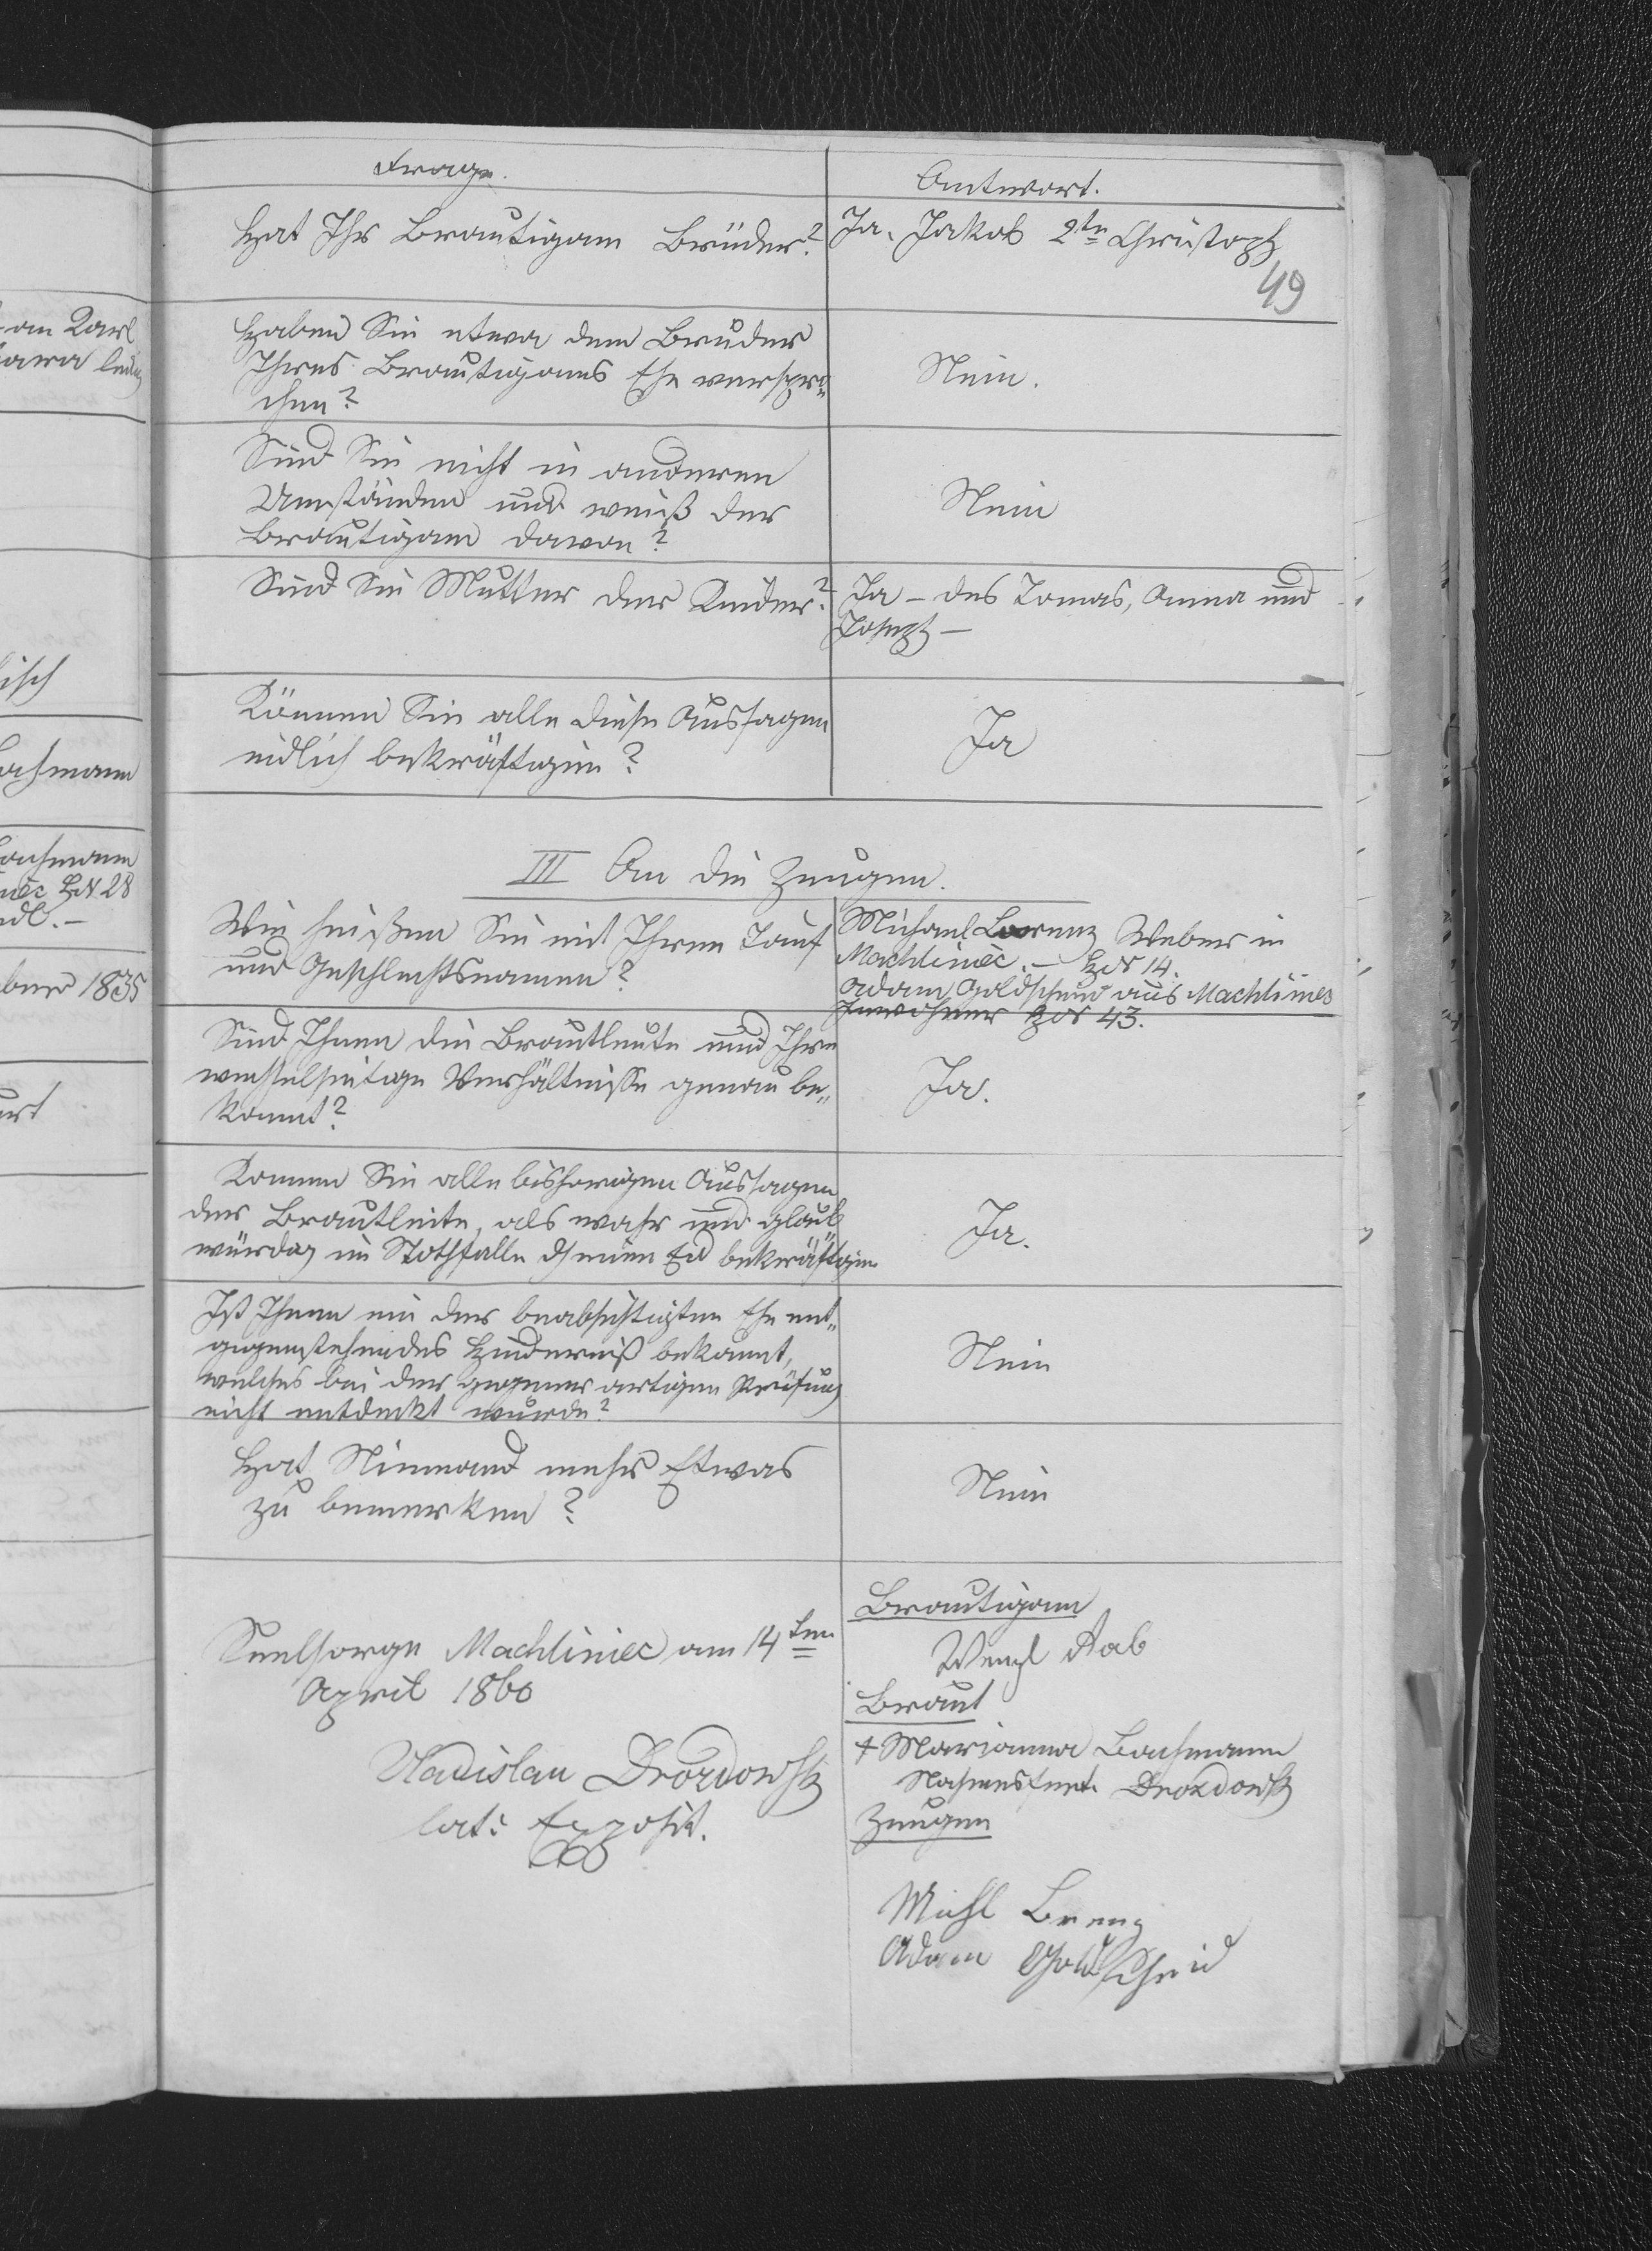 Frage.
Antwort.
Hat Ihr Brautigam Brüder?
Ja. Jakob 2te Christoph
49
Haben Sie etwa dem Bruder
Ihres Brautigams Ehe verspro„
chen?
Nein.
Sind Sie nicht in anderen
Umständen und weiß der
Brautigam davon?
Nein
Sind Sie Mutter der Kinder?
Ja – des Tomas, Anna und
Joseph –
Können Sie alle diese Aussagen
eidlich bekräftigen?
Ja
III An die Zeugen.
Wie heißen Sie mit Ihren Tauf
und Geschlechtsnamen?
Michael Lorenz Weber in
Machliniec. – HN 14.
Adam Goldscheid aus Machliniec
Inwohner HN 43.
Sind Ihnen die Brautleute und Ihre
wechselseitige Verhältnisse genau be„
kannt?
Ja.
Konnen Sie alle bishorigen Aussagen
der Brautleite, als wahr und glaub„
würdig im Nothfalle dh einen Eid bekräftigen
Ja.
Ist Ihnen ein der beabsichtigten Ehe ent„
gegenstehendes Hinderniß bekannt,
welches bei der gegenwartigen Prüfung
nicht entdekt wurde?
Nein
Hat Niemand mehr Etwas
zu bemerken?
Nein
Seelsorge Machliniec am 14ten
April 1860
Vladislau Drozdowski
lat: Exposit.
Brautigam
Wenzl Aab
Braut
+ Marianna Bachmann
Nahmensfert. Drozdowski
Zeugen
Michl Lorenz
Adam Goldscheid
an Karl
ledig
isch
Bachmann
Bachmann
HN 28
1835